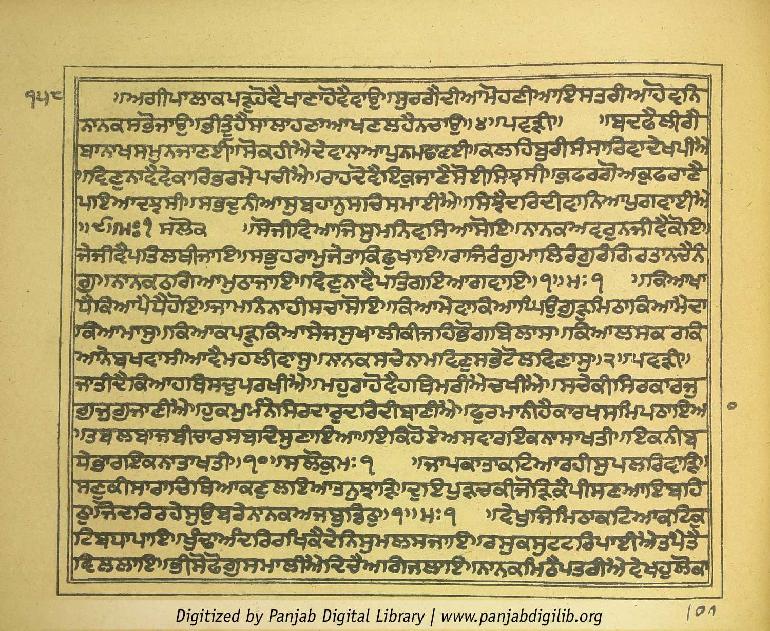 ੧੫੮
॥ਅਗੀਪਾਲਾਕਪੜੁਹੋਵੈਖਾਣਾਹੋਵੈਵਾਉ॥ਸੁਰਗੈਦੀਆਮੋਹਣੀਆਇਸਤਰੀਆਹੋਵਨਿ
ਨਾਨਕਸਭੋਜਾਉ॥ਭੀਤੂਹੈਸਾਲਾਹਣਾਆਖਣਲਹੈਨਚਾਉ॥੪॥ਪਵੜੀ॥ ॥ਬਦਫੈਲੀਗੈ
ਬਾਨਾਖਸਮੁਨਜਾਣਈ॥ਸੋਕਹੀਐਦੇਵਾਨਾਆਪੁਨਪਛਾਣਈ॥ਕਲਹਿਬੁਰੀਸੰਸਾਰਿਵਾਦੇਖਪੀਐ
॥ਵਿਣੁਨਾਵੈਵੇਕਾਰਿਭਰਮੇਪਚੀਐ॥ਰਾਹਦੋਵੈਇਕੁਜਾਣੈਸੋਈਸਿਝਸੀ॥ਕੁਫਰਗੋਅਕੁਫਰਾਣੈ
ਪਇਆਦਝਸੀ॥ਸਭਦੁਨੀਆਸੁਬਹਾਨੁਸਚਿਸਮਾਈਐ॥ਸਿਝੈਦਰਿਦੀਵਾਨਿਆਪੁਗਵਾਈਐ
॥੯॥ਮਃ੧ ਸਲੋਕ ॥ਸੋਜੀਵਿਆਜਿਸੁਮਨਿਵਸਿਆਸੋਇ॥ਨਾਨਕਅਵਰੁਨਜੀਵੈਕੋਇ॥
ਜੇਜੀਵੈਪਤਿਲਥੀਜਾਇ॥ਸਭੁਹਰਾਮੁਜੇਤਾਕਿਛੁਖਾਇ॥ਰਾਜਿਰੰਗੁਮਾਲਿਰੰਗੁਰੰਗਿਰਤਾਨਚੈਨੰ
ਗੁ॥ਨਾਨਕਠਗਿਆਮੁਠਾਜਾਇ॥ਵਿਣੁਨਾਵੈਪਤਿਗਇਆਗਵਾਇ॥੧॥ਮਃ੧ ॥ਕਿਆਖਾ
ਧੈਕਿਆਪੈਧੈਹੋਇ॥ਜਾਮਨਿਨਾਹੀਸਚਾਸੋਇ॥ਕਿਆਮੇਵਾਕਿਆਘਿਉਗੁੜੁਮਿਠਾਕਿਆਮੈਦਾ
॥ਕਿਆਮਾਸੁ॥ਕਿਆਕਪੜੁਕਿਆਸੇਜਸੁਖਾਲੀਕੀਜਹਿਭੋਗਬਿਲਾਸ॥ਕਿਆਲਸਕਰਕਿ
ਆਨੇਬਖਵਾਸੀਆਵੈਮਹਲੀਵਾਸੁ॥ਨਾਨਕਸਚੇਨਾਮਵਿਣੁਸਭੇਟੋਲਵਿਣਾਸੁ॥੨॥ਪਵੜੀ॥
ਜਾਤੀਦੈਕਿਆਹਥਿਸਚੁਪਰਖੀਐ॥ਮਹੁਰਾਹੋਵੈਹਥਿਮਰੀਐਚਖੀਐ॥ਸਚੇਕੀਸਿਰਕਾਰਜੁ
ਗੁਜੁਗੁਜਾਣੀਐ॥ਹੁਕਮੁਮੰਨੇਸਿਰਦਾਰੁਦਰਿਦੀਬਾਣੀਐ॥ਫੁਰਮਾਨੀਹੈਕਾਰਖਸਮਿਪਠਾਇਆ
॥ਤਬਲਬਾਜਬੀਚਾਰਸਬਦਿਸੁਣਾਇਆ॥ਇਕਿਹੋਏਅਸਵਾਰਇਕਨਾਸਾਖਤੀ॥ਇਕਨੀਬ
ਧੇਭਾਰਇਕਨਾਤਾਖਤੀ॥੧੦॥ਸਲੋਕੁਮਃ੧ ॥ਜਾਪਕਾਤਾਕਟਿਆਰਹੀਸੁਪਲਰਿਵਾੜਿ॥
ਸਣੁਕੀਸਾਰਾਚਿਥਿਆਕਣੁਲਇਆਤਨੁਝਾੜਿ॥ਦੁਇਪੁੜਚਕੀਜੋੜਿਕੈਪੀਸਣਆਇਬਹਿ
ਠੁ॥ਜੋਦਰਿਰਹੇਸੁਉਬਰੇਨਾਨਕਅਜਬੁਡਿਠੁ॥੧॥ਮਃ੧ ॥ਵੇਖੁਜਿਮਿਠਾਕਟਿਆਕਟਿਕੁ
ਟਿਬਧਾਪਾਇ॥ਖੁੰਢਾਅੰਦਰਿਰਖਿਕੈਦੇਨਿਸੁਮਲਸਜਾਇ॥ਰਸੁਕਸੁਟਟਰਿਪਾਈਐਤਪੈਤੈ
ਵਿਲਲਾਇ॥ਭੀਸੋਫੋਗੁਸਮਾਲੀਐਦਿਚੈਅਗਿਜਲਾਇ॥ਨਾਨਕਮਿਠੈਪਤਰੀਐਵੇਖਹੁਲੋਕਾ
Digitized by Panjab Digital Library | www.panjabdigilib.org